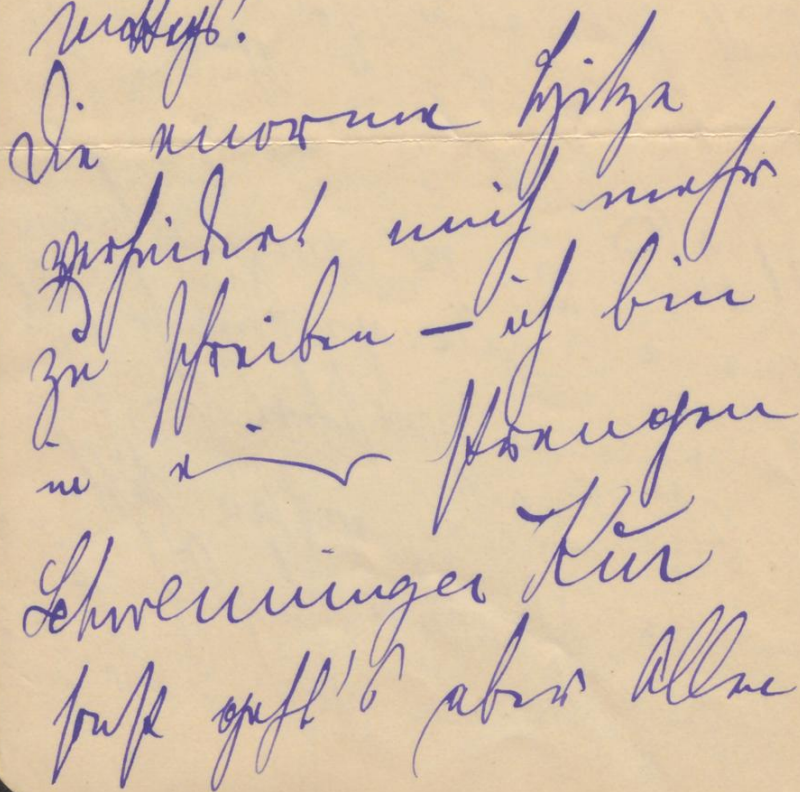 Die enorme Hitze
verhindert mich mehr
zu schreiben – ich bin
in einer strengen
Schwenninger Kur
sonst geht's aber Allen